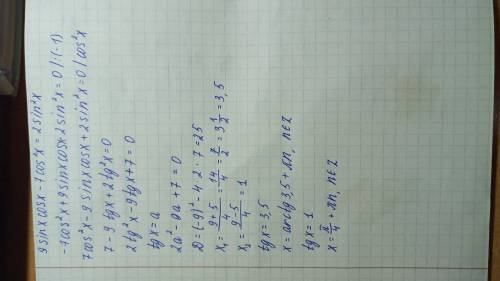 9 sinx cosx - 7cos²x = 2 sin²x
-7cos²x + 9 sinx cosx 2 sin²x = 0 | :(-1)
7cos²x - 9 sinx cosx + 2 sin²x = 0 | cos²x
7 - 9 tgx + 2 tg²x = 0
2tg²x - 9tgx + 7 = 0
tgx = a
2a² - 9a + 7 = 0
D = (-9)² - 4·2·7 = 25
x₁ = (9+5)/4 = 14/4 = 7/2 = 3 1/2 = 3,5
x₂ = (9-5)/4 = 1
tgx = 3,5
x = arctg 3,5 + πn, n∈Z
tgx = 1
x = π/4 + πn, n∈Z